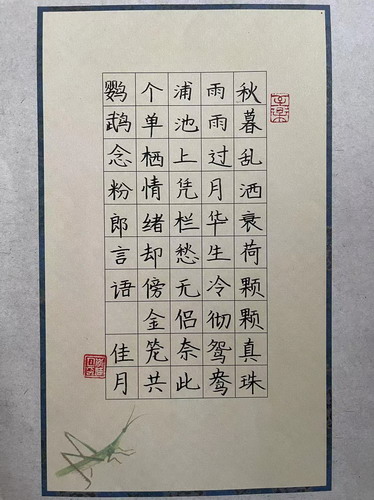 秋暮乱洒衰荷颗颗真珠
雨雨过月华生冷彻鸳鸯
浦池上凭栏愁无侣奈此
个单栖情绪却傍金笼共
鹦鹉念粉郎言语 佳月